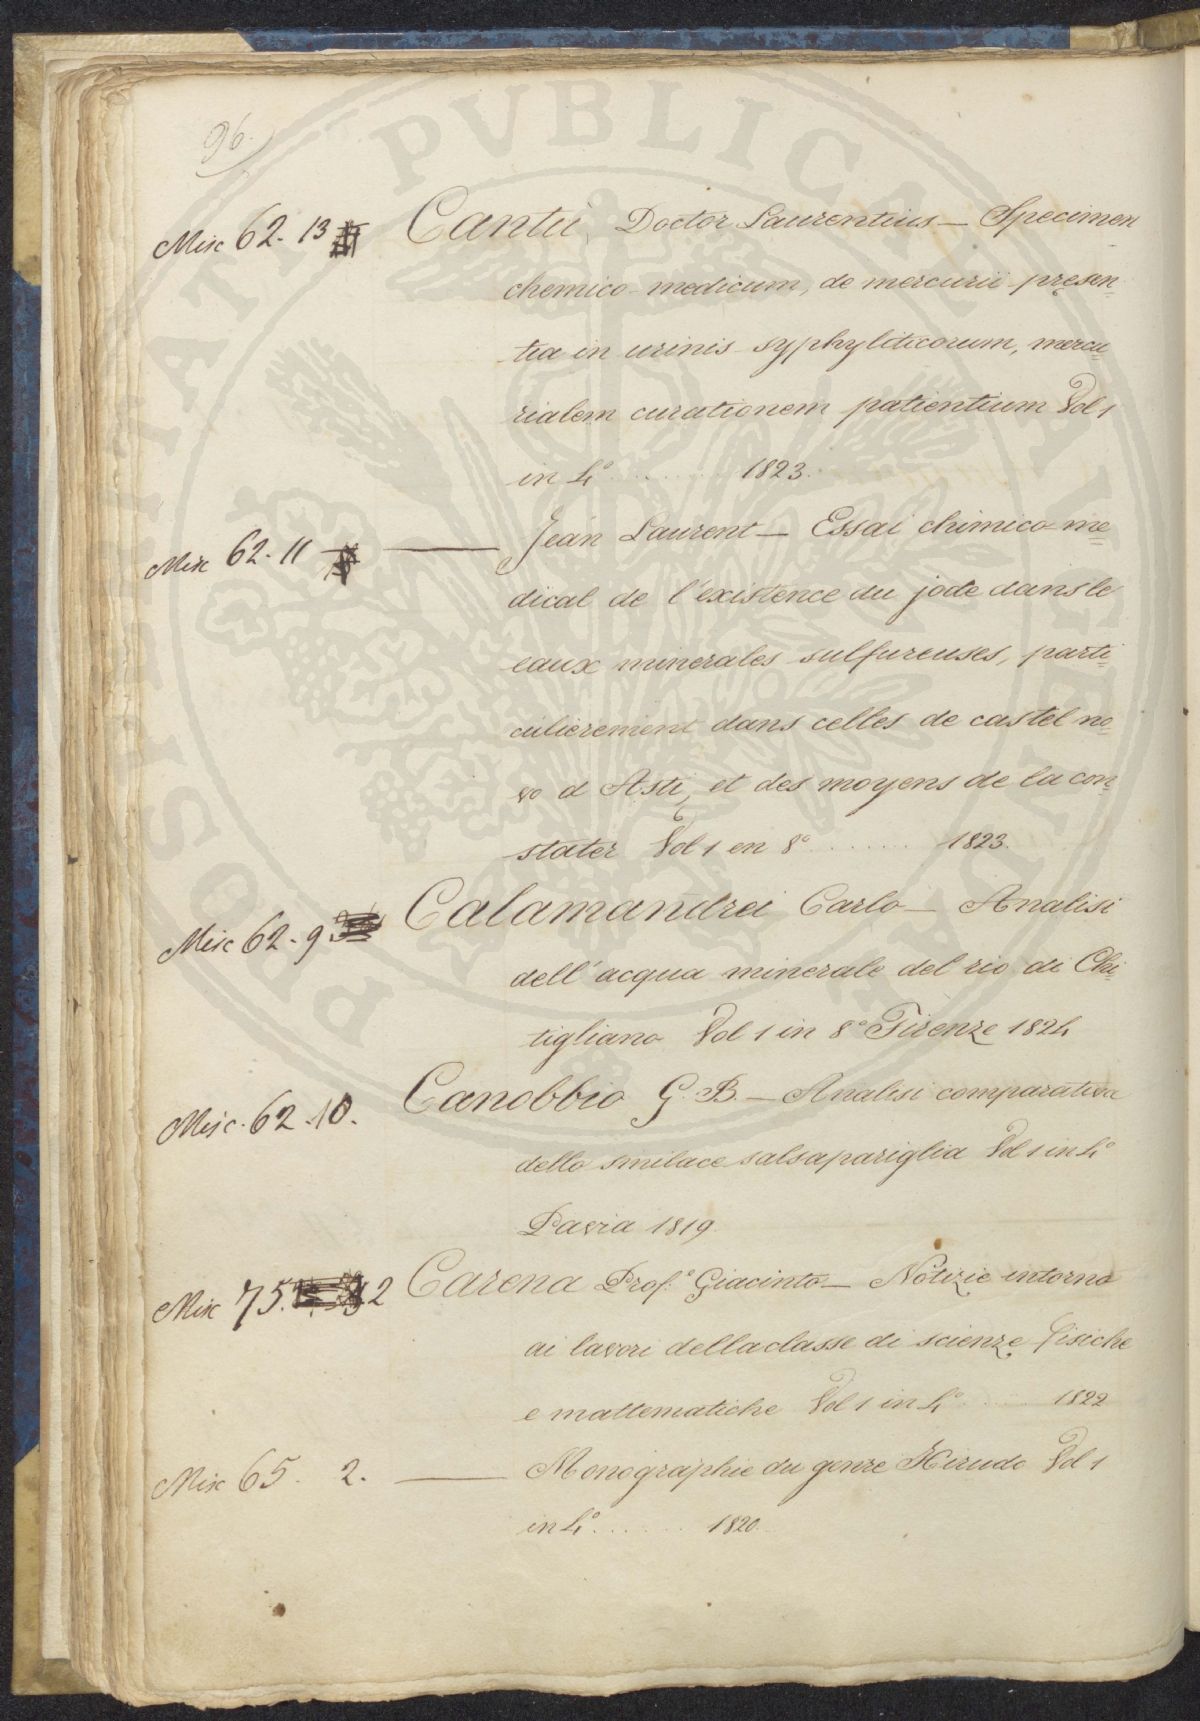 96.
Misc 62. 13 Cantù, Doctor Laurentius — Specimen
chemico-medicum, de mercurii presen=
tia in urinis syphyliticorum, mercu=
rialem curationem patientium Vol 1
in 4° ........ 1823.
Misc 62. 11 — Jean Laurent — Essai chimico-me=
dical de l'existence du jode dans le
eaux minerales sulfureuses, parti=
culierement dans celles de castel no=
vo d Asti, et des moyens de la con=
stater Vol 1 en 8° ........ 1823.
Misc 62. 9 Calamandrei Carlo — Analisi
dell'acqua minerale del rio di Chi=
tigliano Vol 1 in 8° Firenze 1824
Misc. 62. 10. Canobbio G. B. — Analisi comparativa
dello smilace salsapariglia Vol 1 in 4°
Pavia 1819.
Misc 75. 2 Carena Prof.° Giacinto — Notizie intorno
ai lavori della classe di scienze fisiche
e mattematiche Vol 1 in 4° ........ 1822
Misc 65. 2. — Monographie du genre Hirudo Vol 1
in 4° ........ 1820.
PROSPERITATI PVBLICAE AVGENDAE